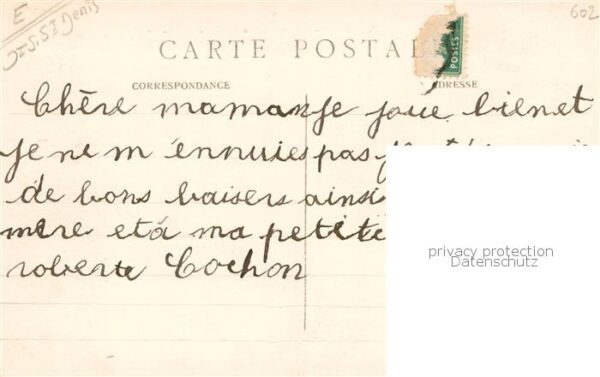 E
602
CARTE POSTALE
POSTES
CORRESPONDANCE
ADRESSE
Chère maman je joue bien et
je ne m énnuies pas
de bons baisers ainsi
mère età ma petite
roberte Cochon
privacy protection
Datenschutz